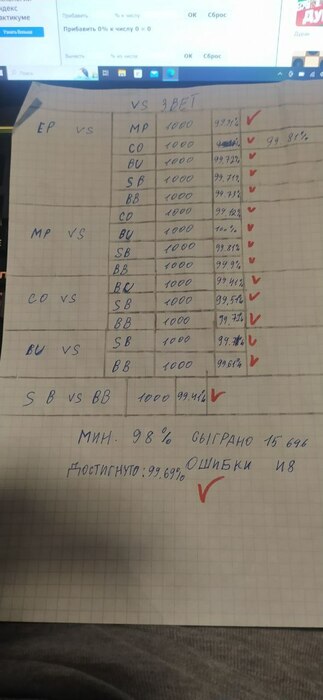 Прибавить % к числу = ОК Сброс
Прибавить 0% к числу 0 = 0
Вычесть ОК Сброс
Узнать больше
Поиск
VS 3BET
EP VS MP 1000
CO 1000 99,81%
BU 1000 99,72%
SB 1000 99,71%
BB 1000 99,73%
MP VS CO 1000
BU 1000 100%
SB 1000 99,81%
BB 1000 99,9%
CO VS BU 1000 99,41%
SB 1000 99,51%
BB 1000 99,7%
BU VS SB 1000
BB 1000 99,61%
SB VS BB 1000 99,41%
МИН. 98% СЫГРАНО 15 696
ДОСТИГНУТО: 99,69% ОШИБКИ 48